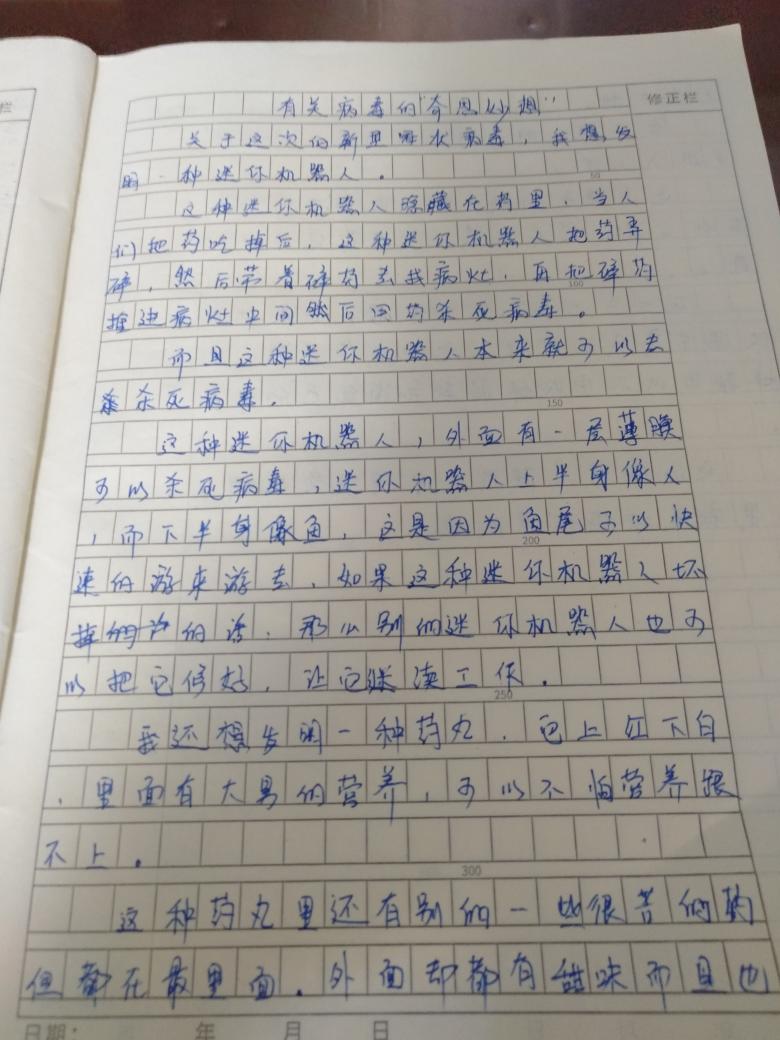 栏
修正栏
有关病毒的"奇思妙想"
关于这次的新型冠状病毒，我想发
明一种迷你机器人。
50
这种迷你机器人隐藏在药里，当人
们把药吃掉后，这种迷你机器人把药弄
碎，然后带着碎药去找病灶，再把碎药
100
推进病灶中间然后用药杀死病毒。
而且这种迷你机器人本来就可以去
杀死病毒。
150
这种迷你机器人，外面有一层薄膜
可以杀死病毒，迷你机器人上半身像人
，而下半身像鱼，这是因为鱼尾可以快
200
速的游来游去，如果这种迷你机器人坏
掉的话，那么别的迷你机器人也可
以把它修好，让它继续工作。
250
我还想发明一种药丸，它上红下白
，里面有大量的营养，可以不怕营养跟
不上。
300
这种药丸里还有别的一些很苦的药
但都在最里面。外面却都有甜味而且也
日期： 年 月 日